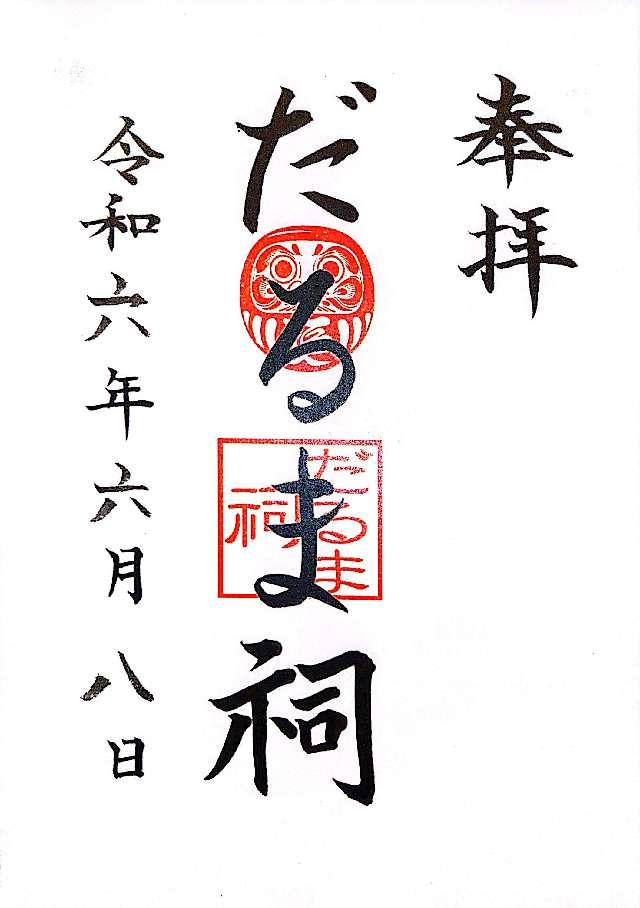 奉拝
だるま祠
だるま
祠
令和六年六月八日